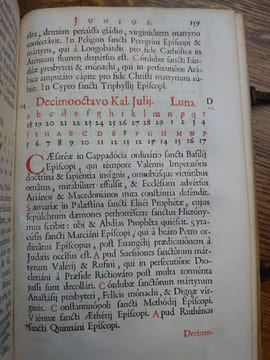 JUNIUS. 159
tka, demum percussa gladio, virginitatem martyrio
consecravit. In Pelignis sancti Peregrini Episcopi &
martyris, qui à Longobardis pro fide Catholica in
Aternum flumen demersus est. Cordubæ sancti Fandilæ
presbyteri & monachi, qui in persecutione Arabica
amputato capite pro fide Christi martyrium subiit.
In Cypro sancti Triphyllij Episcopi.
Decimooctavo Kal. Julij. Luna. D
a b c d e f g h i k l m n p q r
Cæsareæ in Cappadocia ordinatio sancti Basilij
Episcopi, qui tempore Valentis Imperatoris
doctrina & sapientia insignis, omnibusque virtutibus
ornatus, mirabiliter effulsit, & Ecclesiam adversus
Arianos & Macedonianos mira constantia defendit.
Samariæ in Palæstina sancti Elisei Prophetæ, cujus
sepulchrum dæmones perhorrescere sanctus Hieronymus
scribit: ubi & Abdias Propheta quiescit. Syracusis
sancti Marciani Episcopi, qui à beato Petro ordinatus
Episcopus, post Evangelij prædicationem à
Judæis occisus est. Apud Suessiones sanctorum martyrum
Valerij & Rufini, qui in persecutione Diocletiani
à Præside Rictiovaro post multa tormenta
jussi sunt decollari. Cordubæ sanctorum martyrum
Anastasij presbyteri, Felicis monachi, & Dignæ virginis.
Constantinopoli sancti Methodij Episcopi.
Viennæ sancti Ætherij Episcopi. Apud Ruthenos
sancti Quintiani Episcopi.
Decimo-